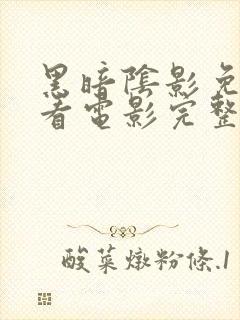 黑暗陰影免
看電影完整
酸菜燉粉條.1